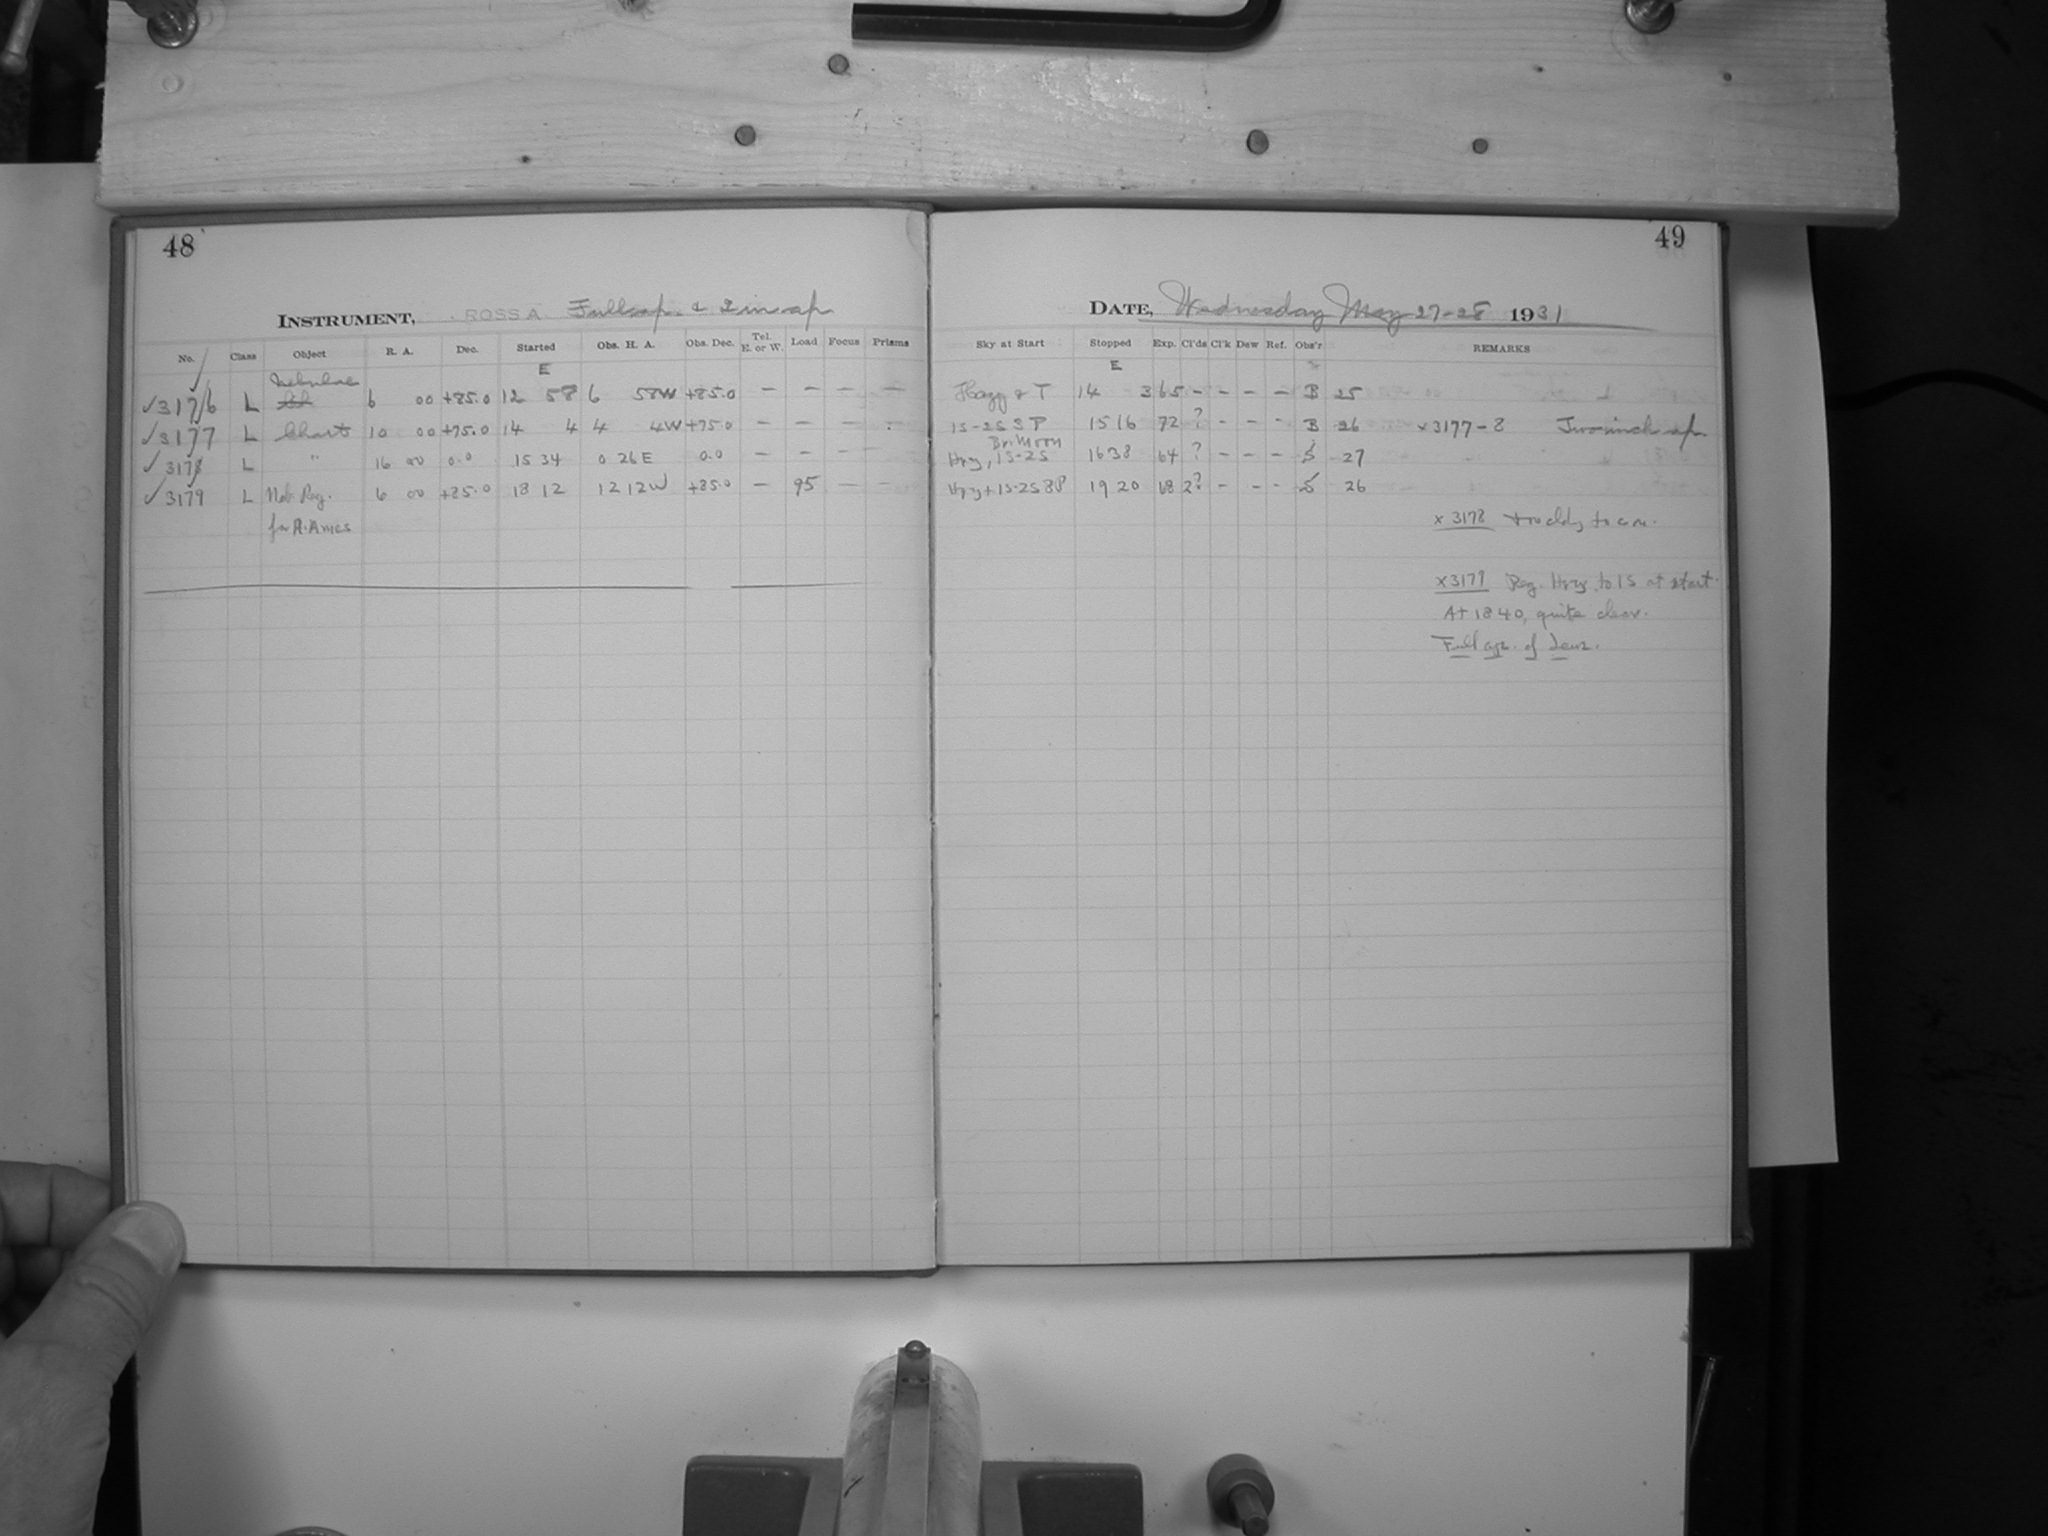 48
INSTRUMENT, ROSS A Full ap. & 2 in. ap
No. Class Object R. A. Dec. Started Obs. H. A. Obs. Dec. Tel. E. or W. Load Focus Prisms
E
Nebulae
✓3176 L 6 00 +85.0 12 58 6 58W +85.0 — — — —
✓3177 L Chart 10 00 +75.0 14 4 4 4W +75.0 — — —
✓3178 L " 16 00 0.0 15 34 0 26E 0.0 — — —
✓3179 L Neb. Reg. 6 00 +85.0 18 12 12 12W +85.0 — 95 — —
for A. Ames
49
DATE, Wednesday May 27-28 1931
Sky at Start Stopped Exp. Cl'ds Cl'k Dew Ref. Obs'r REMARKS
E
Hazy & T 14 3 65 - - - - B 25
1S-2S 3 P 15 16 72 ? - - - B 26 x3177-8 Two inch ap.
Br. Moon
Hzy, 1S-2S 16 38 64 ? - - - S 27
Hzy + 1S-2S 19 20 68 2? - - - S 26
x 3178
x3179 Reg. Hzy. to 1S at start.
At 1840, quite clear.
Full ap. of lens.